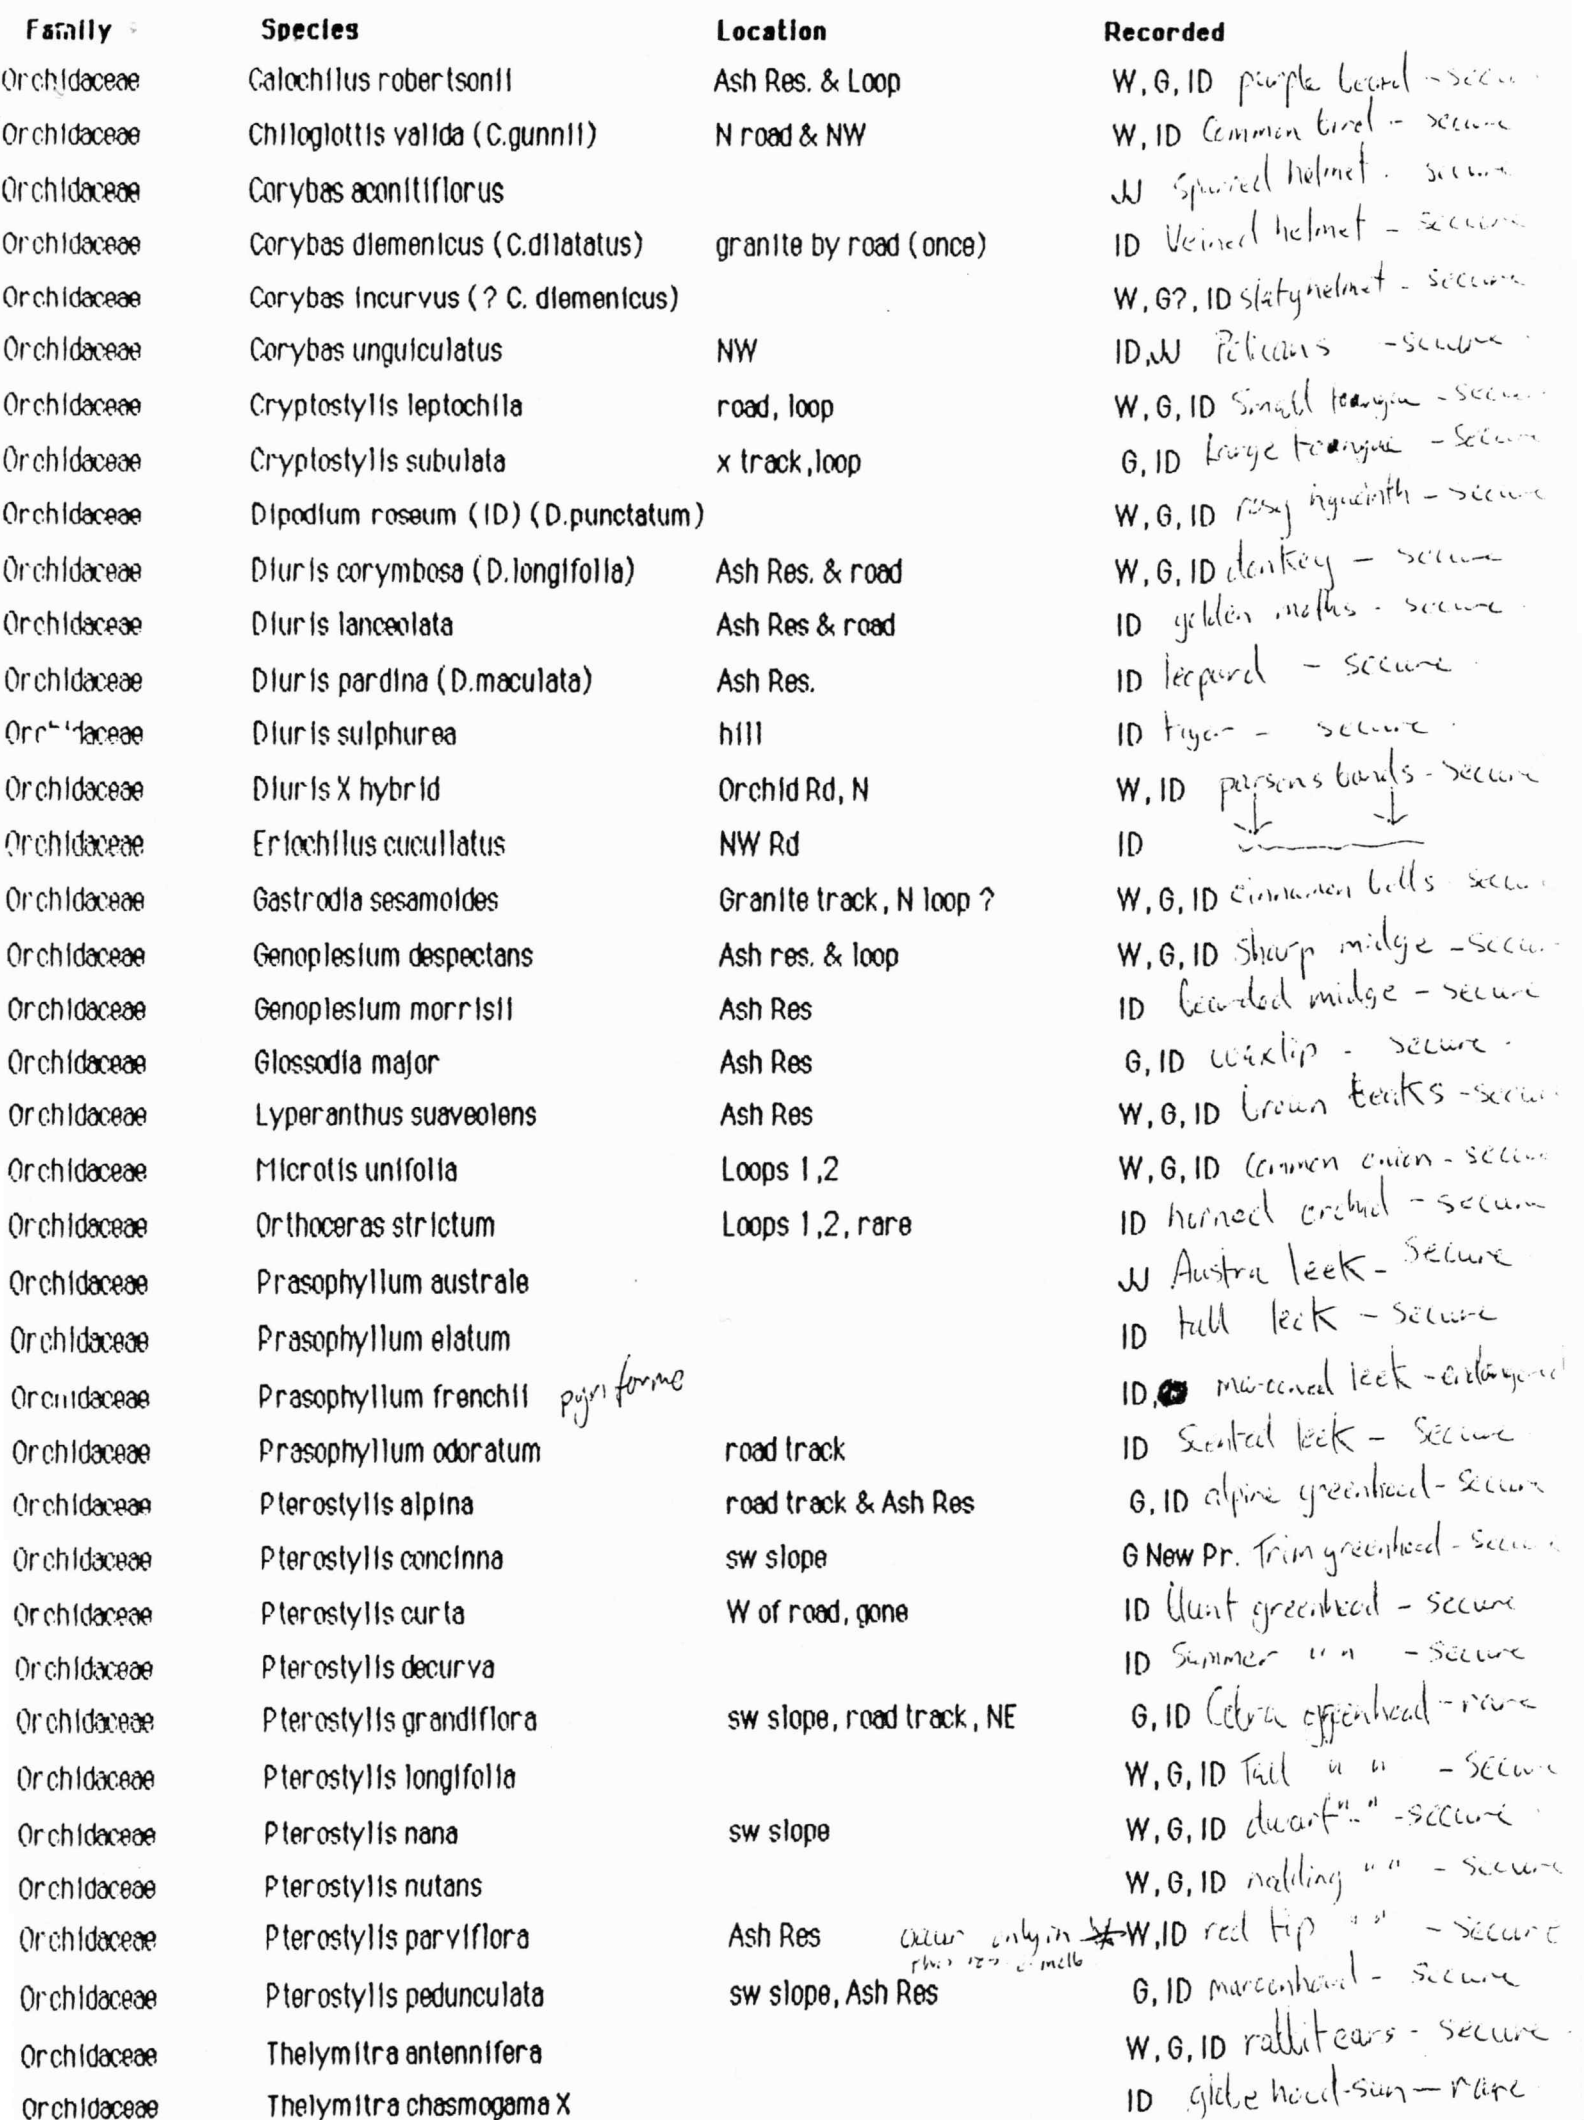 Family Species Location Recorded
Orchidaceae Calochilus robertsonii Ash Res. & Loop W, G, ID purple beard - secu
Orchidaceae Chiloglottis valida (C.gunnii) N road & NW W, ID Common bird - secure
Orchidaceae Corybas aconitiflorus JJ Spurred helmet . secure
Orchidaceae Corybas diemenicus (C.dilatatus) granite by road (once) ID Veined helmet - secure
Orchidaceae Corybas incurvus (? C. diemenicus) W, G?, ID slaty helmet - secure
Orchidaceae Corybas unguiculatus NW ID, JJ Pelicans - secure
Orchidaceae Cryptostylis leptochila road, loop W, G, ID Small tongue - secu
Orchidaceae Cryptostylis subulata x track, loop G, ID Large tongue - Secure
Orchidaceae Dipodium roseum (ID) (D.punctatum) W, G, ID rosy hyacinth - secure
Orchidaceae Diuris corymbosa (D.longifolia) Ash Res. & road W, G, ID donkey - secure
Orchidaceae Diuris lanceolata Ash Res & road ID golden moths - secure
Orchidaceae Diuris pardina (D.maculata) Ash Res. ID leopard - secure
Orchidaceae Diuris sulphurea hill ID tiger - secure
Orchidaceae Diuris X hybrid Orchid Rd, N W, ID parsons bands - secure
Orchidaceae Eriochilus cucullatus NW Rd ID
Orchidaceae Gastrodia sesamoides Granite track, N loop ? W, G, ID cinnamon bells - secu
Orchidaceae Genoplesium despectans Ash res. & loop W, G, ID Sharp midge - secu
Orchidaceae Genoplesium morrisii Ash Res ID bearded midge - secure
Orchidaceae Glossodia major Ash Res G, ID waxlip - secure
Orchidaceae Lyperanthus suaveolens Ash Res W, G, ID brown beaks - secu
Orchidaceae Microtis unifolia Loops 1,2 W, G, ID Common onion - secure
Orchidaceae Orthoceras strictum Loops 1,2, rare ID horned orchid - secure
Orchidaceae Prasophyllum australe JJ Austra leek - Secure
Orchidaceae Prasophyllum elatum ID tall leek - Secure
Orchidaceae Prasophyllum frenchii pyriforme ID, maroon leek - endangered
Orchidaceae Prasophyllum odoratum road track ID Scented leek - Secure
Orchidaceae Pterostylis alpina road track & Ash Res G, ID alpine greenhood - Secure
Orchidaceae Pterostylis concinna sw slope G New Pr. Trim greenhood - Secure
Orchidaceae Pterostylis curta W of road, gone ID blunt greenhood - secure
Orchidaceae Pterostylis decurva ID Summer " " - Secure
Orchidaceae Pterostylis grandiflora sw slope, road track, NE G, ID Cobra greenhood - rare
Orchidaceae Pterostylis longifolia W, G, ID Tall " " - Secure
Orchidaceae Pterostylis nana sw slope W, G, ID dwarf " " - secure
Orchidaceae Pterostylis nutans W, G, ID nodding " " - Secure
Orchidaceae Pterostylis parviflora Ash Res occur only in W, ID red tip " " - Secure
this res
Orchidaceae Pterostylis pedunculata sw slope, Ash Res G, ID maroonhood - Secure
Orchidaceae Thelymitra antennifera W, G, ID rabbit ears - secure
Orchidaceae Thelymitra chasmogama X ID globe hood-sun - rare